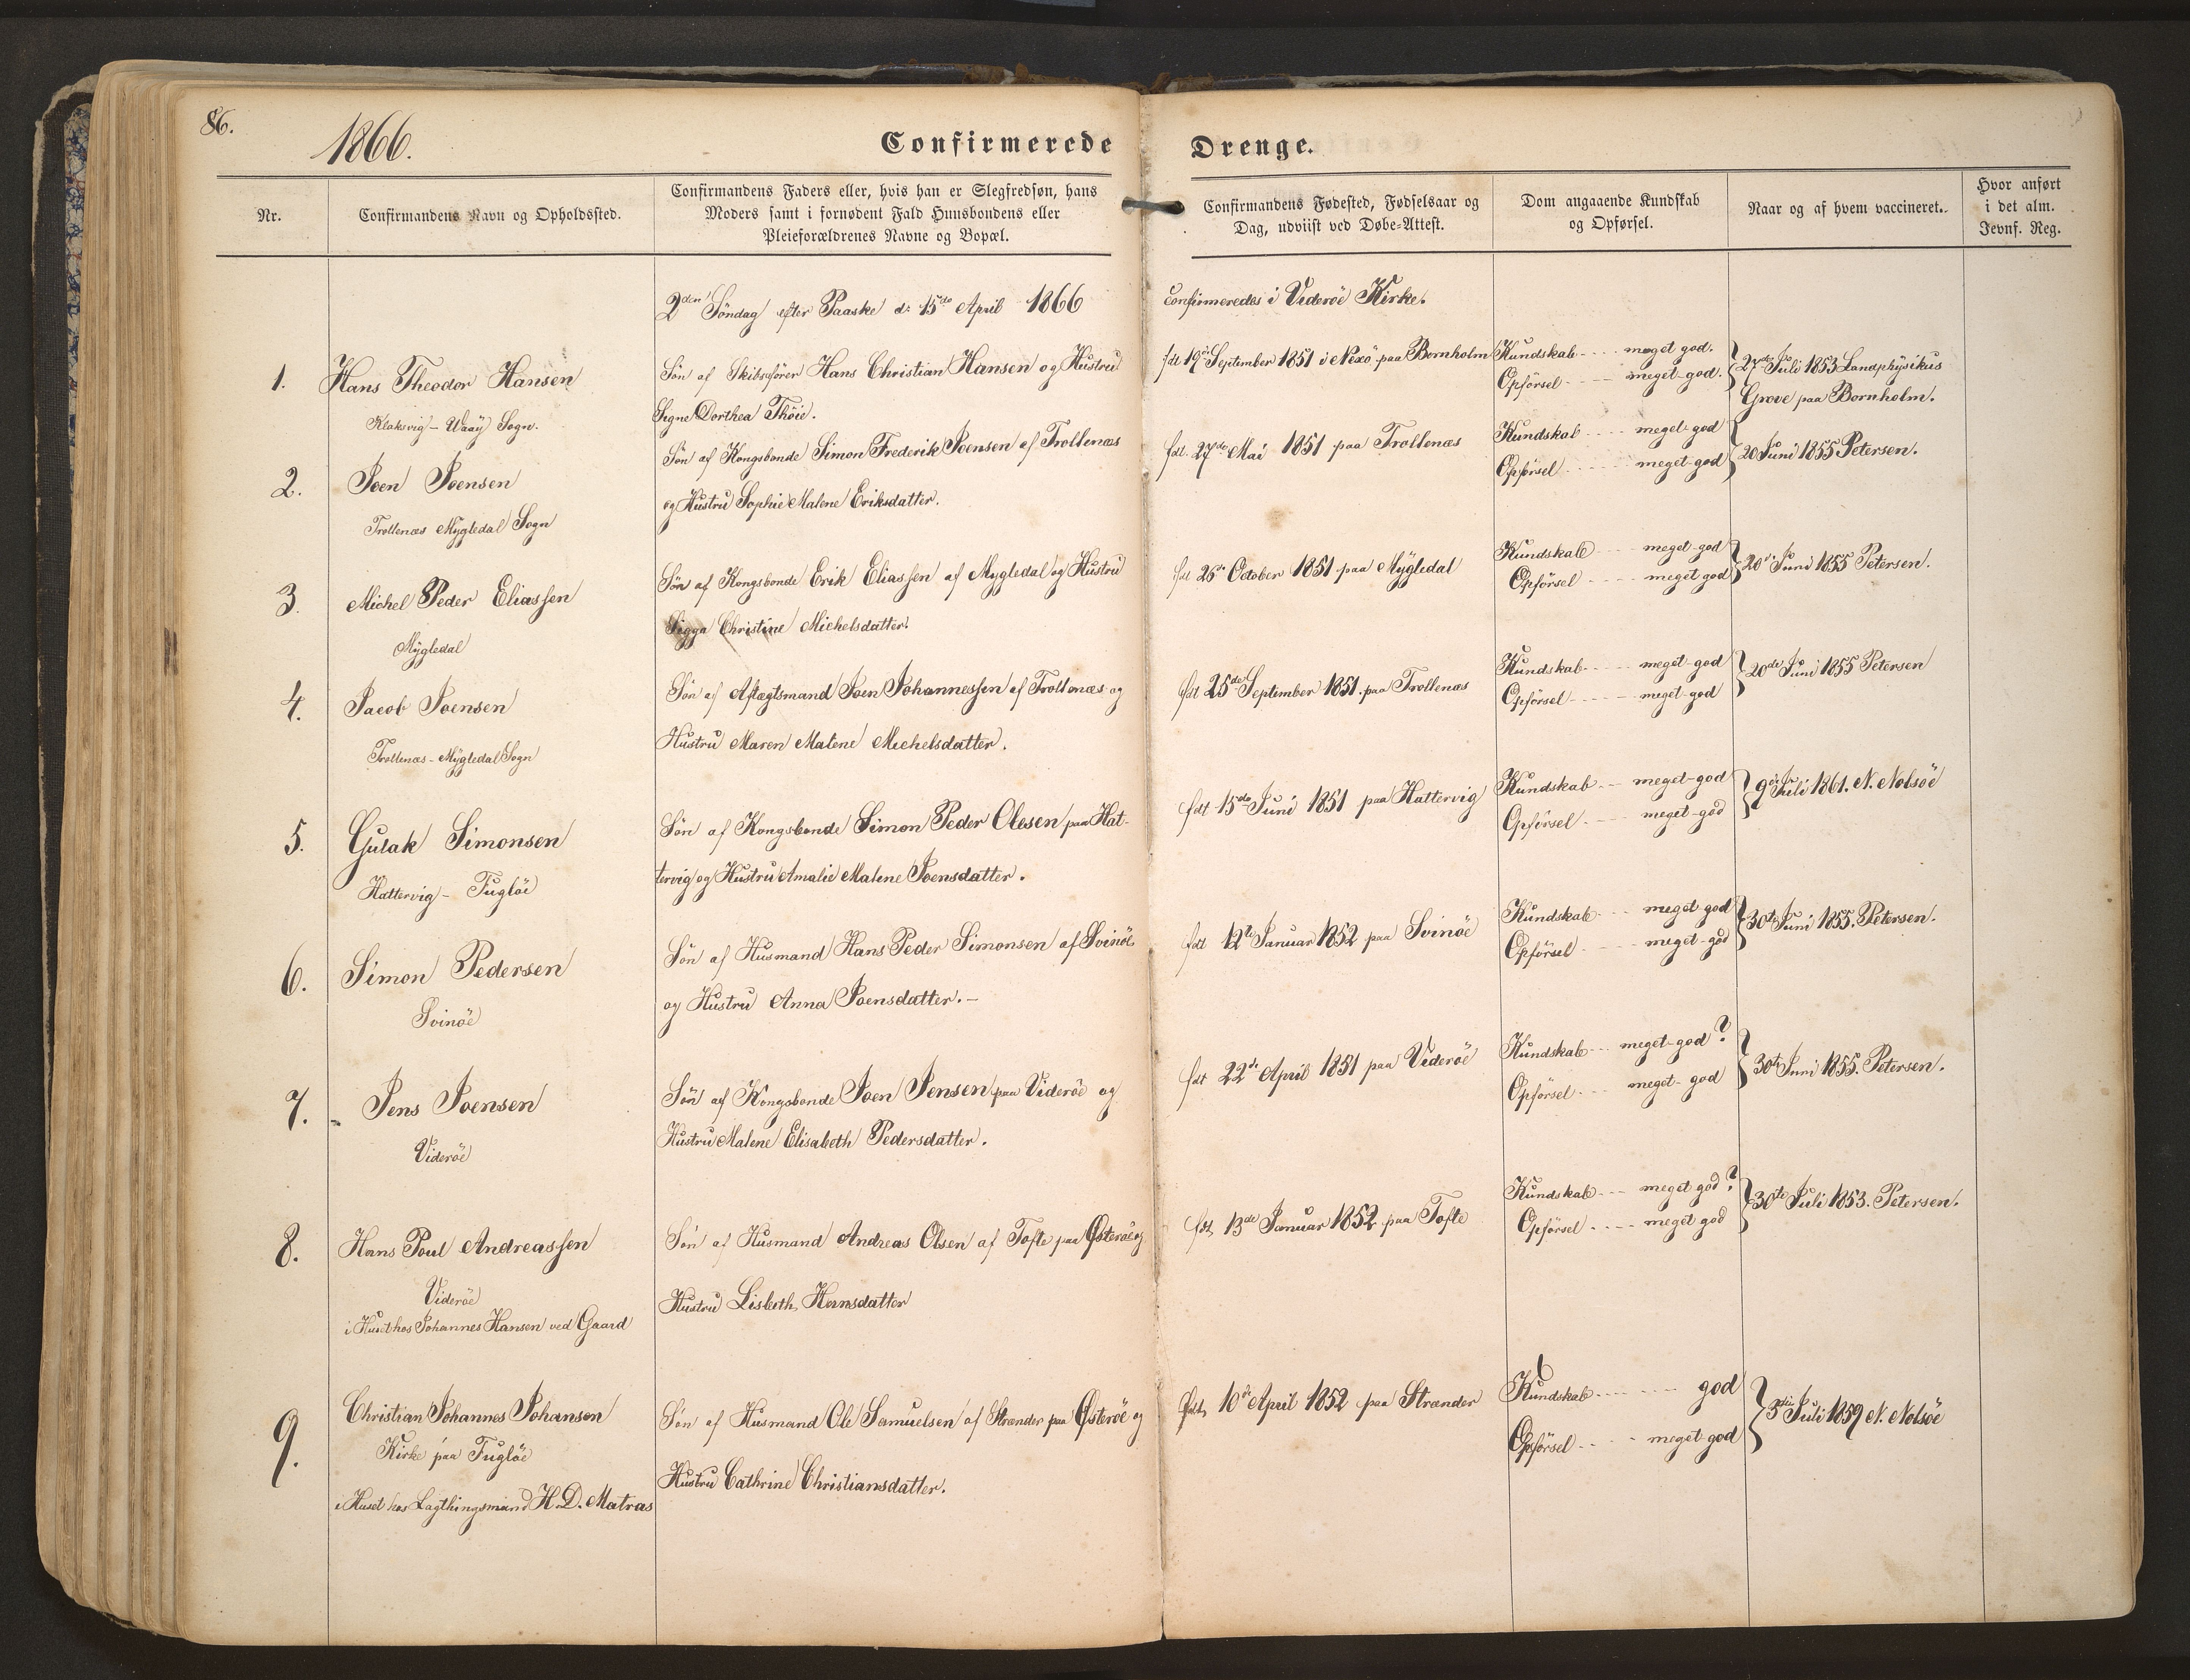 86.
1866.
Confirmerede Drenge.
Nr.
Confirmandens Navn og Opholdssted.
Confirmandens Faders eller, hvis han er Slegfredsøn, hans
Moders samt i fornødent Fald Huusbondens eller
Pleieforældrenes Navne og Bopæl.
Confirmandens Fødested, Fødselsaar og
Dag, udviist ved Døbe-Attest.
Dom angaaende Kundskab
og Opførsel.
Naar og af hvem vaccineret.
Hvor anført
i det alm.
Jevnf. Reg.
2den Söndag efter Paaske d: 15de April 1866
confirmeredes i Videröe Kirke.
1.
Hans Theodor Hansen
Klaksvig - Waaÿ Sogn.
Sön af Skibsförer Hans Christian Hansen og Hustru
Signe Dorthea Thöie.
fdt 19de September 1851 i Nexö paa Bornholm
Kundskab - - - - meget god.
Opförsel - - - - meget-god.
27de Juli 1853 Landphÿsikus
Grove paa Bornholm.
2.
Joen Joensen
Trollenæs Mÿgledal Sogn
Sön af Kongsbonde Simon Frederik Joensen af Trollenæs
og Hustru Sophie Malene Eriksdatter.
fdt. 27de Mai 1851 paa Trollenæs
Kundskab - - - - meget-god
Opförsel - - - - meget-god
20 Juni 1855 Petersen.
3.
Michel Peder Eliassen
Mÿgledal
Sön af Kongsbonde Erik Eliassen af Mygledal og Hustru
Sigga Christine Michelsdatter.
fdt 26de October 1851 paa Mÿgledal
Kundskab - - - meget-god
Opförsel - - - - meget god
20de Juni 1855 Petersen.
4.
Jacob Joensen
Trollenæs - Mÿgledal Sogn
Sön af Aftægtsmand Joen Johannessen af Trollenæs og
Hustru Maren Malene Michelsdatter.
fdt 25de September 1851. paa Trollenæs
Kundskab - - - - meget-god
Opförsel - - - - meget-god
20de Juni 1855 Petersen
5.
Gulak Simonsen
Hattervig - Fuglöe
Sön af Kongsbonde Simon Peder Olesen paa Hat-
tervig og Hustru Amalie Malene Joensdatter.
fdt 15de Juni 1851 paa Hattervig
Kundskab - - - meget-god
Opförsel - - - - meget-god
9de Juli 1861. N. Nolsöe
6.
Simon Pedersen
Svinöe
Sön af Husmand Hans Peder Simonsen af Svinöe
og Hustru Anna Joensdatter. -
fdt 12te Januar 1852 paa Svinöe
Kundskab - - - meget god
Opförsel - - - - meget-god
30te Juni 1855. Petersen.
7.
Jens Joensen
Videröe
Sön af Kongsbonde Joen Jensen paa Videröe og
Hustru Malene Elisabeth Pedersdatter.
fdt 22de April 1851 paa Videröe
Kundskab - - - meget-god?
Opförsel - - - - meget-god
30te Juni 1855. Petersen.
8.
Hans Poul Andreassen
Videröe
i Huset hos Johannes Hansen ved Gaard
Sön af Husmand Andreas Olsen af Tofte paa Österöe og
Hustru Lisbeth Hansdatter
fdt 13de Januar 1852 paa Tofte
Kundskab - - - meget god?
Opförsel - - - - meget god
30te Juli 1853. Petersen.
9.
Christian Johannes Johansen
Kirke paa Fuglöe
i Huset hos Lagthingsmand H. D. Matras
Sön af Husmand Ole Samuelsen af Strænder paa Österöe og
Hustru Cathrine Christiansdatter.
fdt, 10de April 1852 paa Strænder
Kundskab - - - - - - god
Opförsel - - - - meget-god
3die Juli 1859 N. Nolsöe